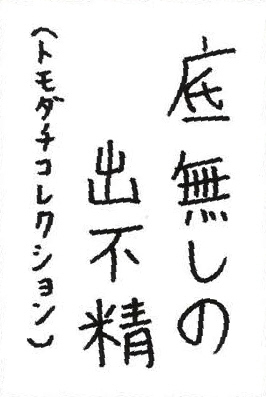 底無しの
出不精
（トモダチコレクション）